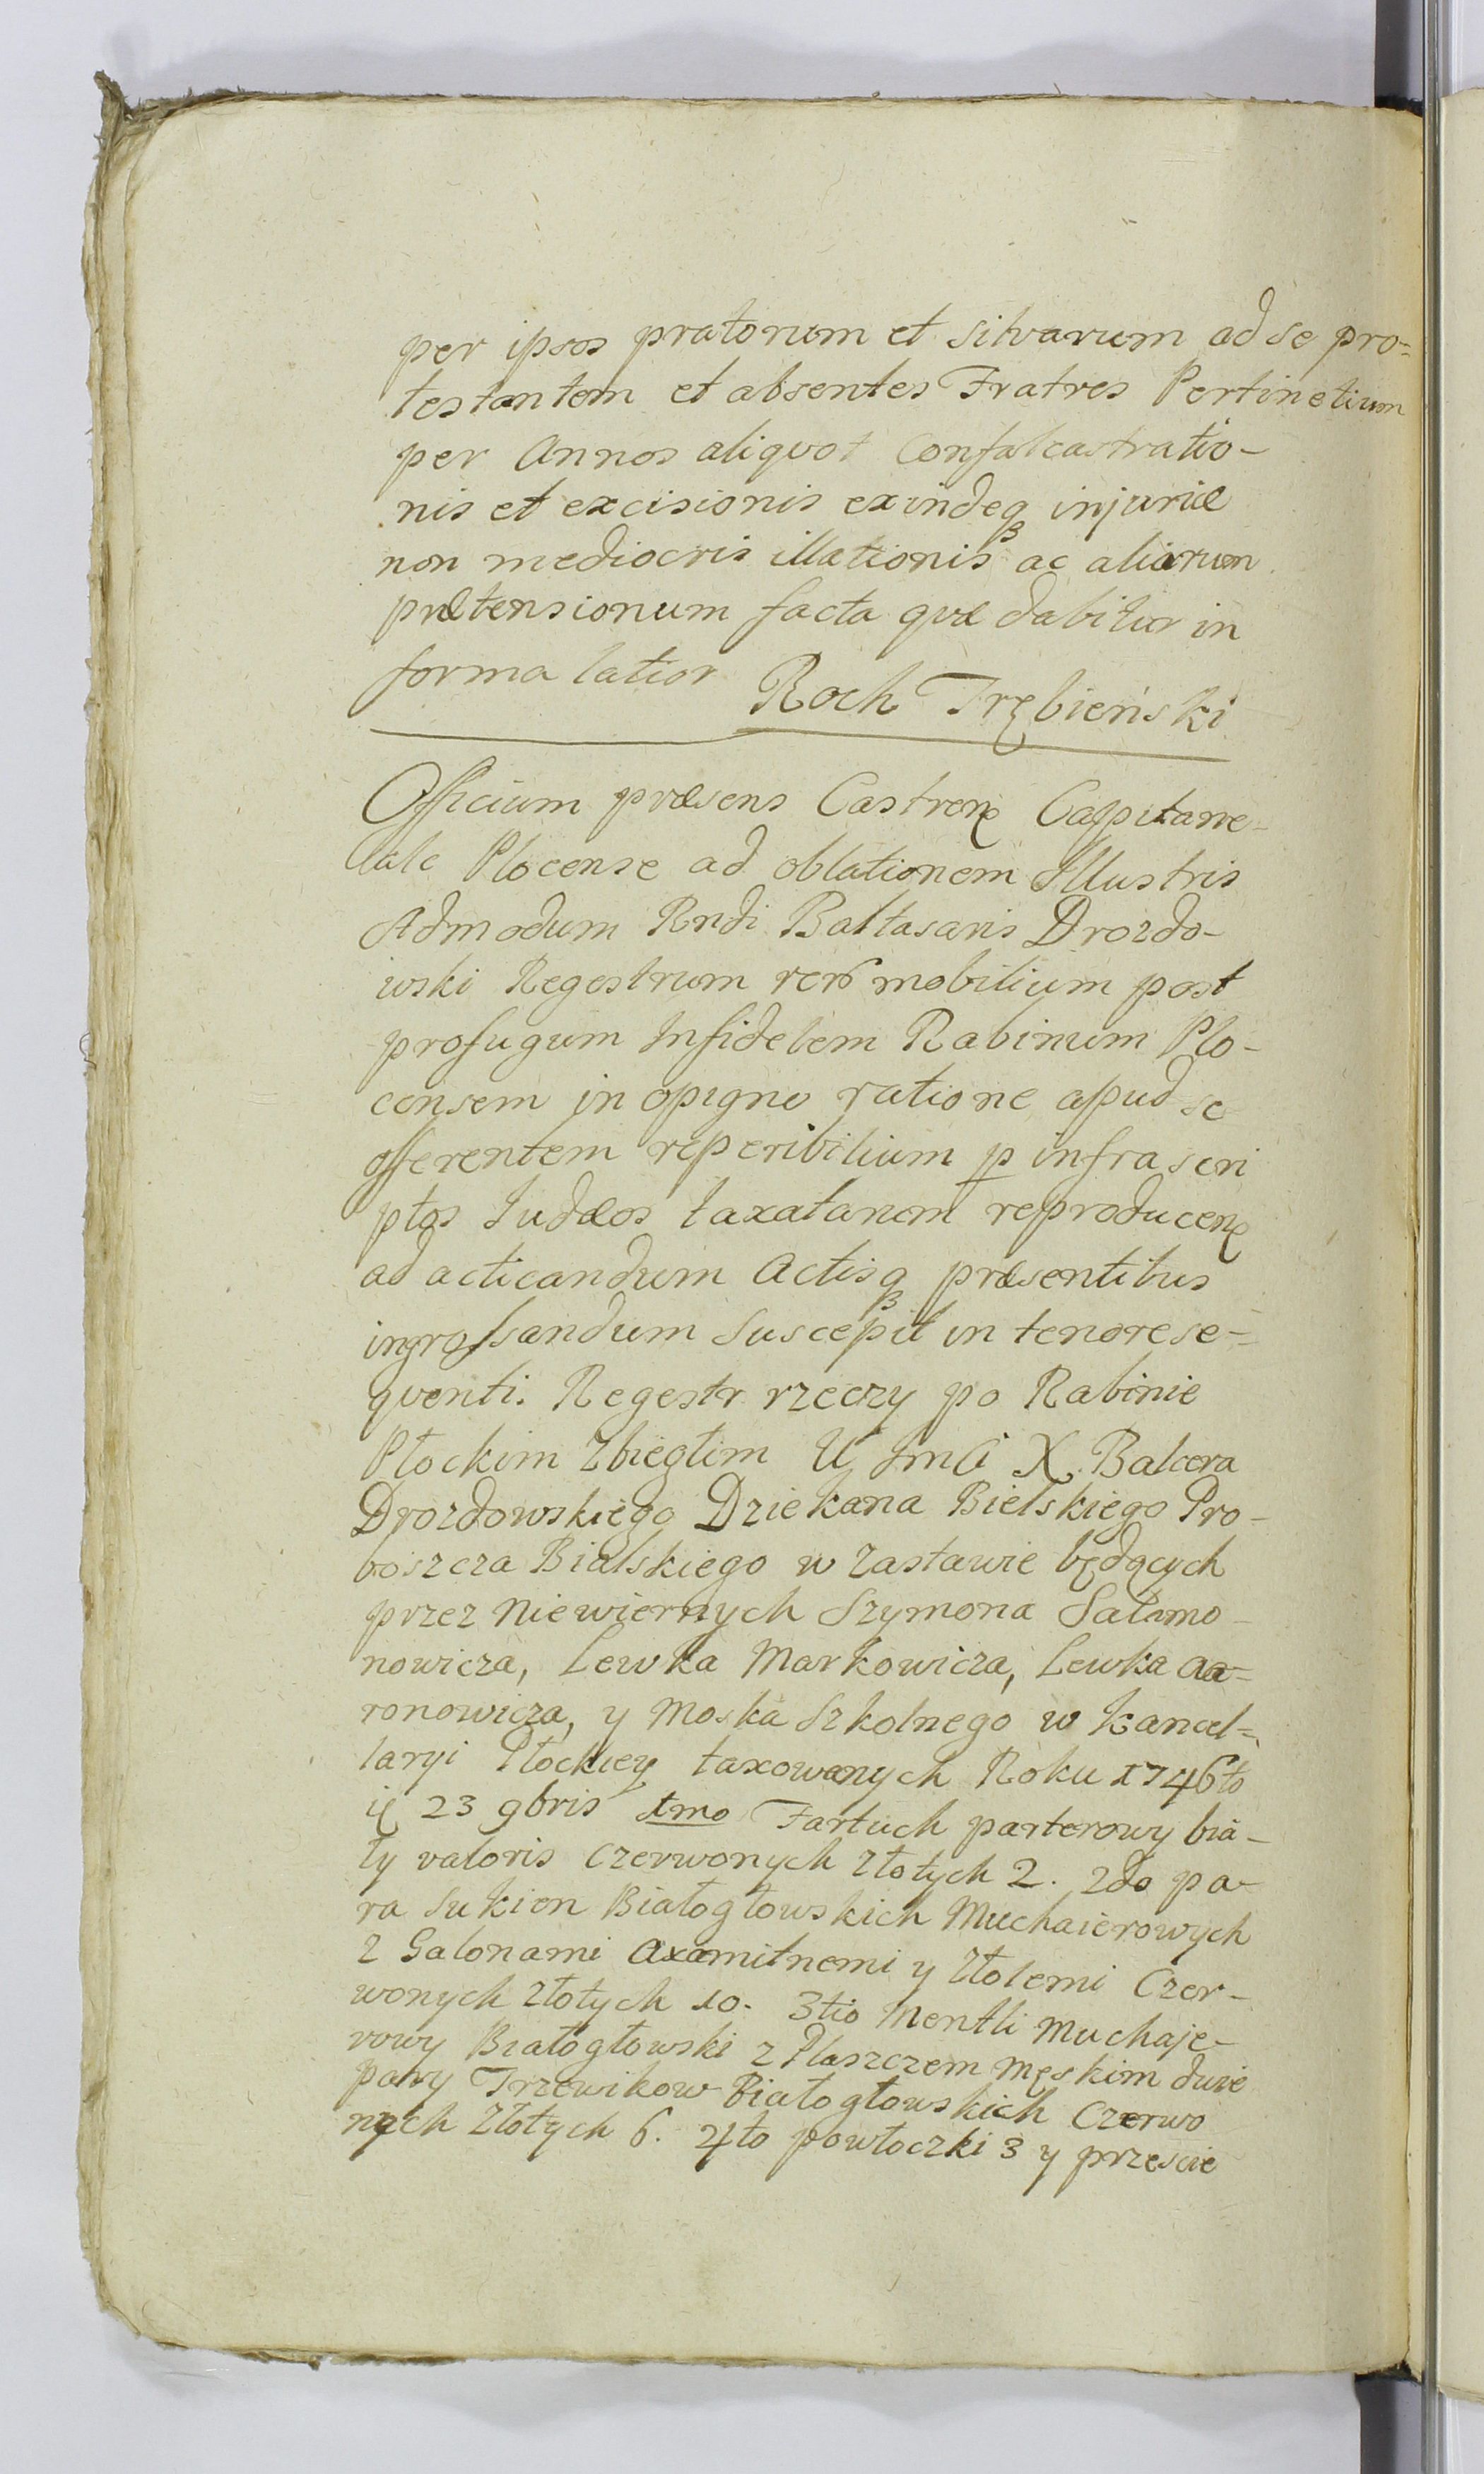 per ipsos pratorum et silvarum ad se pro=
testantem et absentes Fratres Pertinetium
per Annos aliquot Confalcastratio-
nis et excisionis exindeq injuriæ
non mediocris illationis ac aliarum
prætensionum facta quæ dabitur in
forma latior Roch Trębieński
Officium præsens Castren Capitane-
ale Plocense ad oblationem Illustris
Admodum Rndi Baltasaris Drozdo-
wski Regestrum reró mobilium post
profugum Infidelem Rabinum Plo-
censem in opigno ratione apud se
offerentem reperibilium p infra scri
ptos Judæos taxatarum reproducen
ad acticandum Actisq præsentibus
ingrossandum suscepit in tenore se-
quenti. Regestr rzeczy po Rabinie
Płockim Zbiegłim U Jmci X. Balcera
Drozdowskiego Dziekana Bielskiego Pro-
boszcza Bialskiego w zastawie będących
przez Niewiernych Szymona Salamo-
nowicza, Lewka Markowicza, Lewka Aa-
ronowicza, y Moska Szkolnego w Kancel-
laryi Płockiey taxowanych Roku 1746to
ię 23 9bris 1mo Fartuch parterowy bia-
ły valoris Czerwonych Złotych 2. 2do pa-
ra Sukien Białogłowskich Muchaierowych
z Galonami Axamitnemi y Złotemi Czer-
wonych Złotych 10. 3tio Mentli Muchaje-
rowy Białogłowski z Płaszczem męskim dwie
pary Trzewikow Białogłowskich Czerwo
nych Złotych 6. 4to powłoczki 3 y przeście